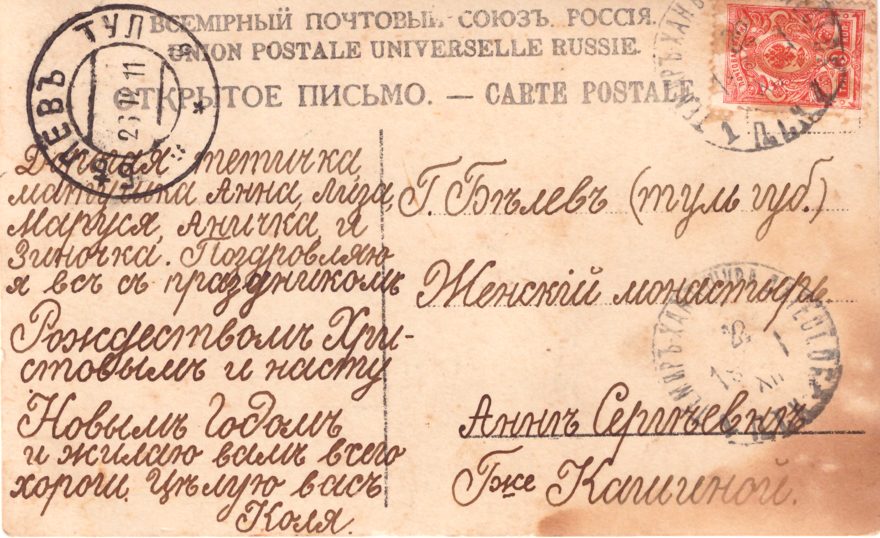 ВСЕМІРНЫЙ ПОЧТОВЫЙ СОЮЗЪ. РОССІЯ.
UNION POSTALE UNIVERSELLE RUSSIE.
ОТКРЫТОЕ ПИСЬМО. — CARTE POSTALE
БѢЛЕВЪ ТУЛ
26 12 11
тетичка
матушка Анна, Лиза,
Маруся, Аничка, и
Зиночка. Поздровляю
я всѣ съ праздникомъ
Рождествомъ Хри-
стовымъ и насту
Новымъ Годомъ
и жилаю вамъ всего
хорош. Цѣлую васъ
Коля.
Г. Бѣлевъ (туль губ.)
Женскій монастырь.
Аннѣ Сергѣевнѣ
Гже Кашиной.